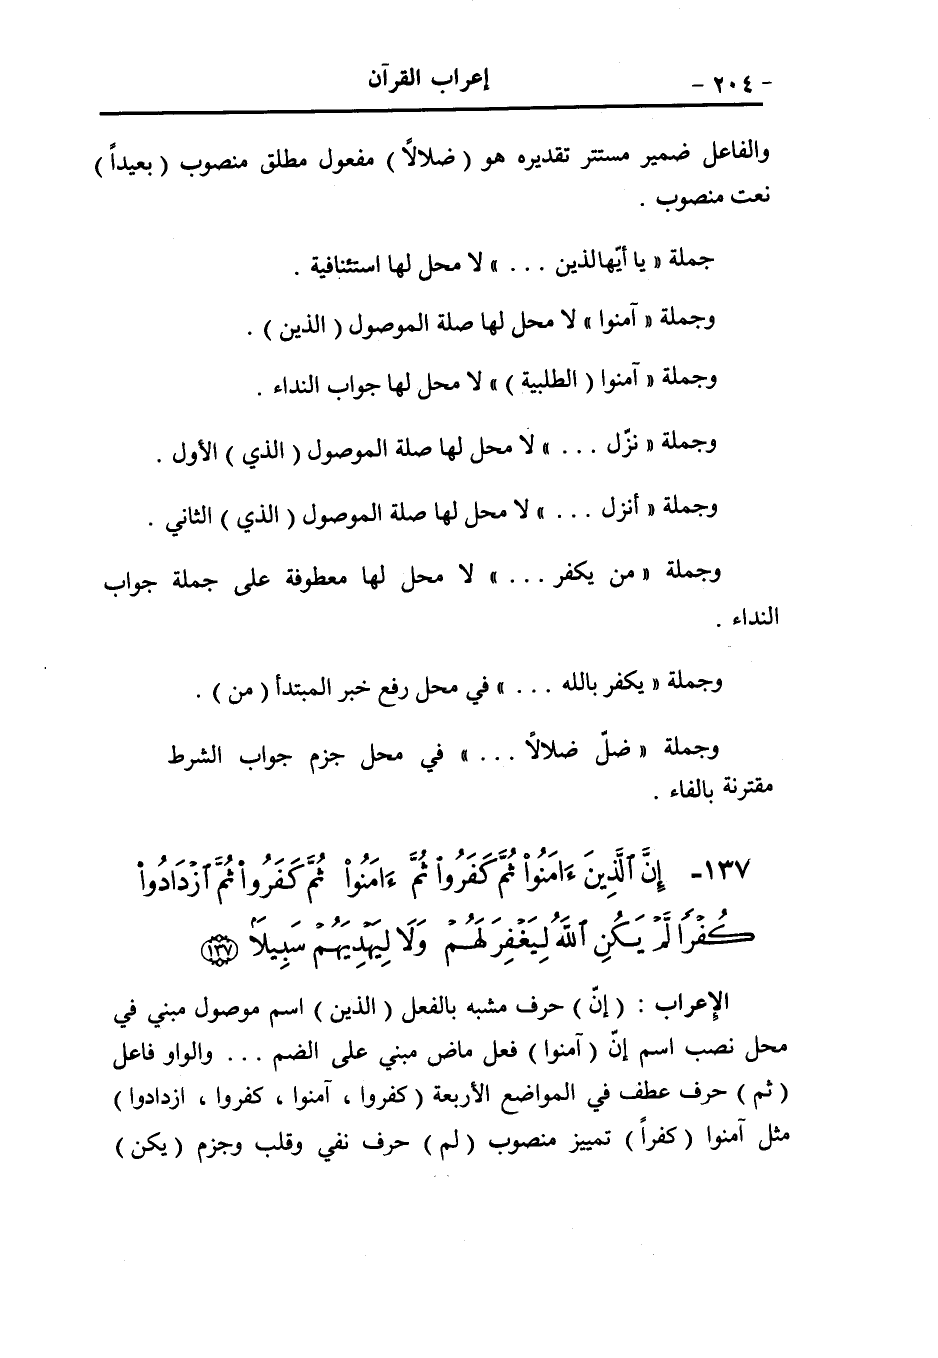 - ٢٠٤ -
إعراب القرآن
والفاعل ضمير مستتر تقديره هو ( ضلالاً ) مفعول مطلق منصوب ( بعيداً )
نعت منصوب .
جملة « يا أيّهالذين . . . » لا محل لها استئنافية .
وجملة « آمنوا » لا محل لها صلة الموصول ( الذين ) .
وجملة « آمنوا ( الطلبية ) » لا محل لها جواب النداء .
وجملة « نزّل . . . » لا محل لها صلة الموصول ( الذي ) الأول .
وجملة « أنزل . . . » لا محل لها صلة الموصول ( الذي ) الثاني .
وجملة « من يكفر . . . » لا محل لها معطوفة على جملة جواب
النداء .
وجملة « يكفر بالله . . . » في محل رفع خبر المبتدأ ( من ) .
وجملة « ضلّ ضلالاً . . . » في محل جزم جواب الشرط
مقترنة بالفاء .
١٣٧- إِنَّ ٱلَّذِينَ ءَامَنُواْ ثُمَّ كَفَرُواْ ثُمَّ ءَامَنُواْ ثُمَّ كَفَرُواْ ثُمَّ ٱزْدَادُواْ
كُفْرًا لَّمْ يَكُنِ ٱللَّهُ لِيَغْفِرَ لَهُمْ وَلَا لِيَهْدِيَهُمْ سَبِيلَاۢ ١٣٧
الإعراب : ( إنّ ) حرف مشبه بالفعل ( الذين ) اسم موصول مبني في
محل نصب اسم إنّ ( آمنوا ) فعل ماض مبني على الضم . . . والواو فاعل
( ثم ) حرف عطف في المواضع الأربعة ( كفروا ، آمنوا ، كفروا ، ازدادوا )
مثل آمنوا ( كفراً ) تمييز منصوب ( لم ) حرف نفي وقلب وجزم ( يكن )